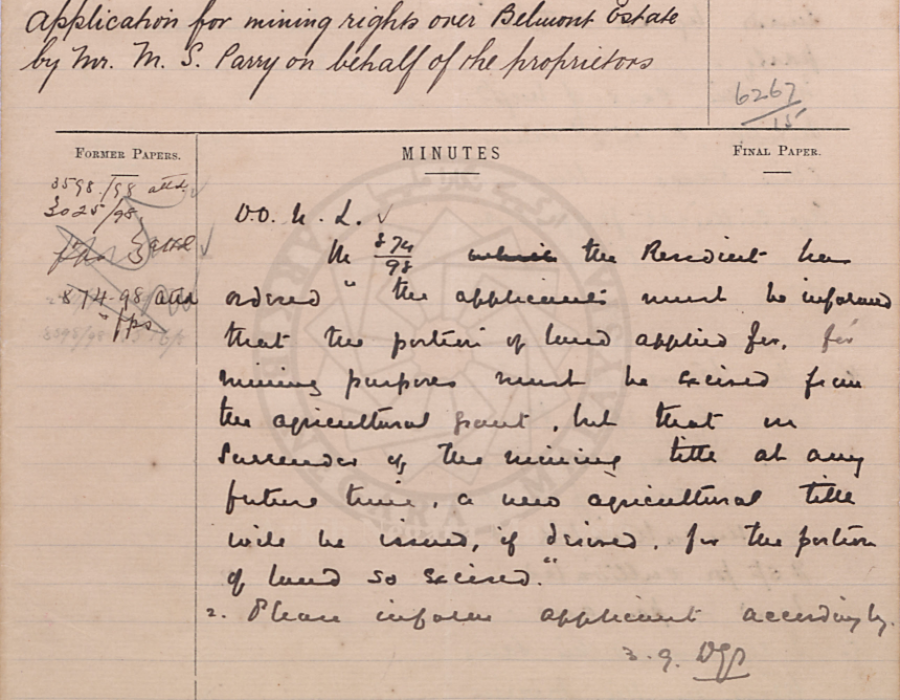 Application for mining rights over Belmont Estate
by Mr. M. S. Parry on behalf of the proprietors
6267/15
FORMER PAPERS.
MINUTES
FINAL PAPER.
3598/98 attd.
3025/98.
attd
874-98 attd
D.O. U. L.
In 874/98 which the Resident has
ordered "the applicants must be informed
that the portion of land applied for, for
mining purposes must be excised from
the agricultural grant, but that on
surrender of the mining title at any
future time, a new agricultural title
will be issued, if desired, for the portion
of land so excised."
2. Please inform applicant accordingly.
3.9.